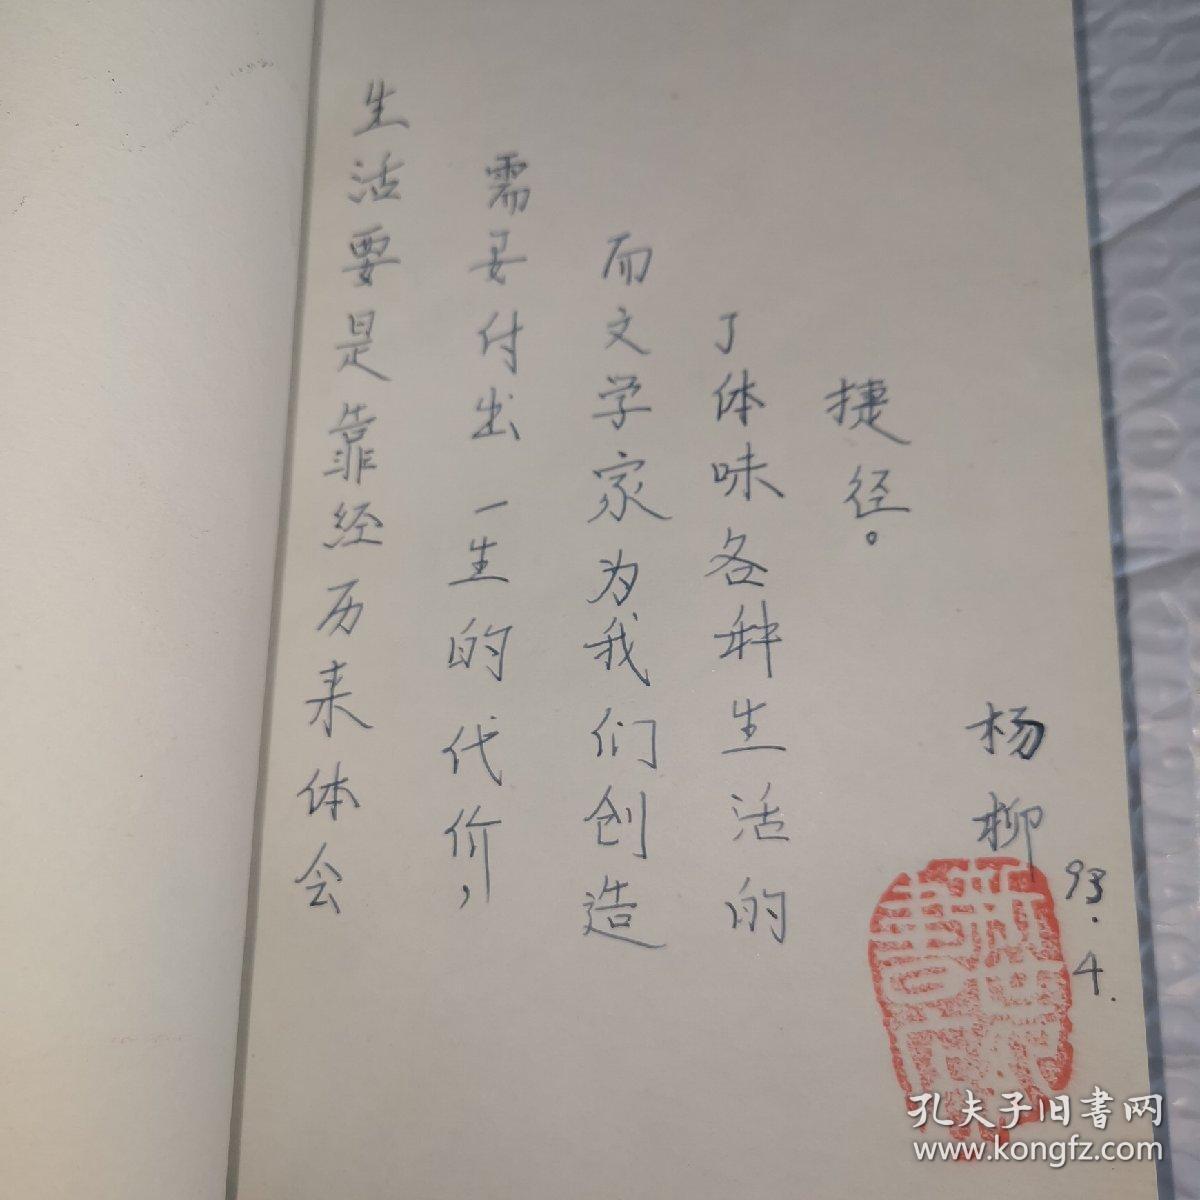 生活要是靠经历来体会
需要付出一生的代价,
而文学家为我们创造
了体味各种生活的
捷径。
杨柳
93.4.
新世纪
書店
孔夫子旧书网
www.kongfz.com